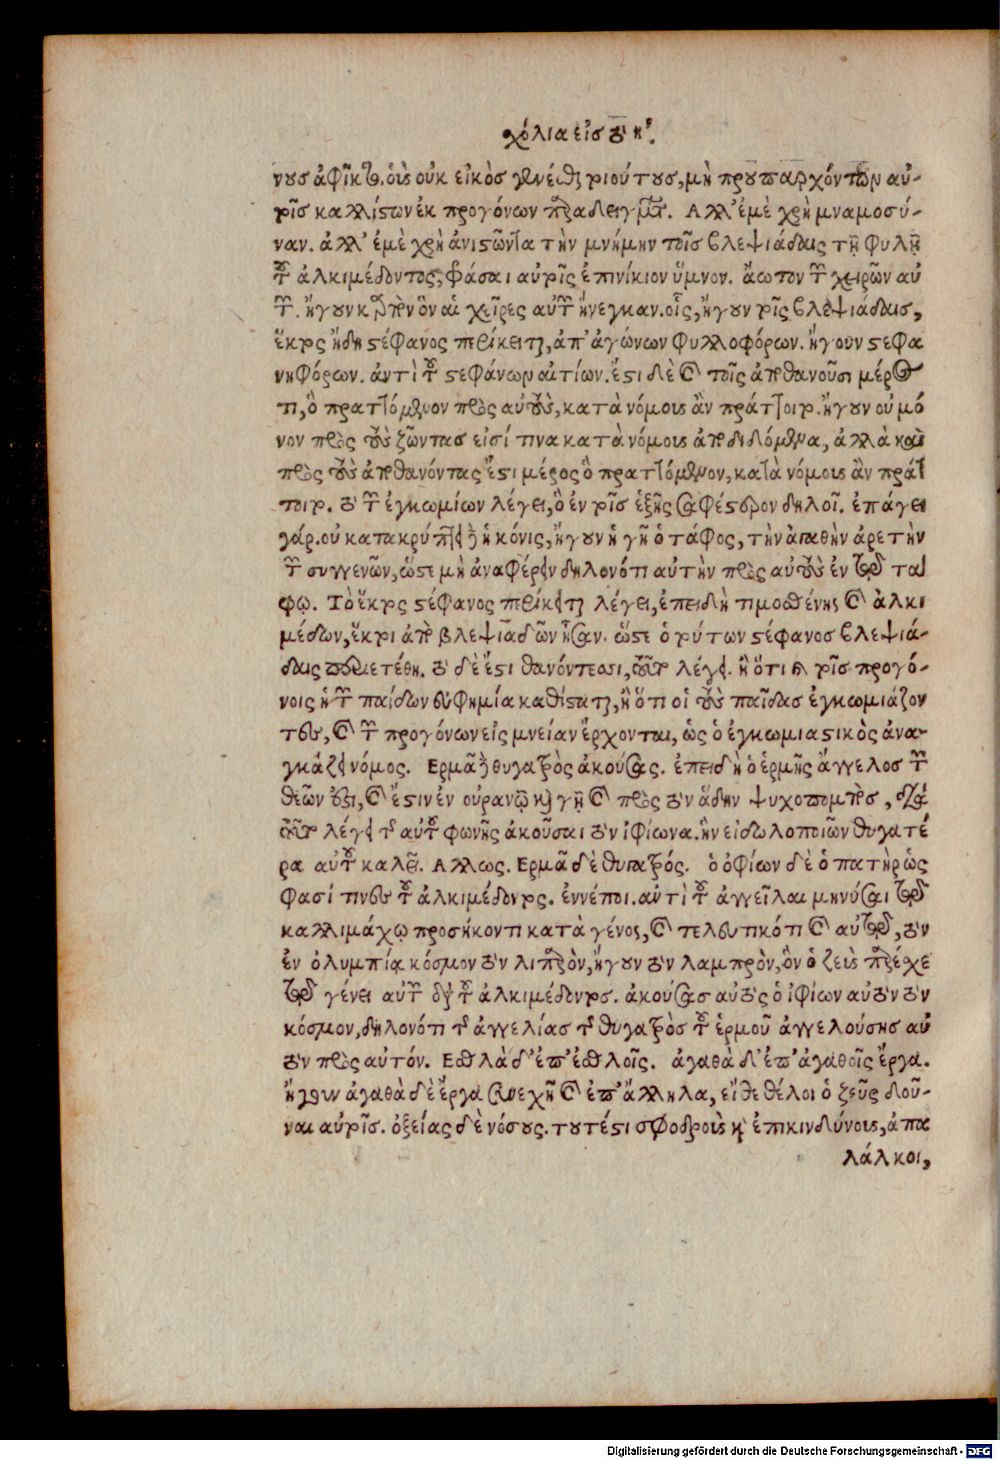 χόλια εἰς τὸ ηʹ.
νους ἀφῖκται. οὓς οὐκ εἰκὸς γενέσθαι τοιούτους, μὴ προϋπαρχόντων αὐ-
τοῖς καλλίστων ἐκ προγόνων παραδειγμάτων. Ἀλλ' ἐμὲ χρὴ μναμοσύ-
ναν. ἀλλ' ἐμὲ χρὴ ἀνιστῶντα τὴν μνήμην τοῖς βλεψιάδαις τῇ φυλῇ
τοῦ ἀλκιμέδοντος, φράσαι αὐτοῖς ἐπινίκιον ὕμνον. ἄωτον τῶν χειρῶν αὐ
τῶν. ἤγουν καρπὸν ὃν αἱ χεῖρες αὐτῶν ἤνεγκαν. οἷς, ἤγουν τοῖς βλεψιάδαις,
ἕκτος ἤδη στέφανος περίκειται, ἀπ' ἀγώνων φυλλοφόρων. ἤγουν στεφα
νηφόρων. ἀντὶ τοῦ στεφάνων αἰτίων. ἔστι δὲ καὶ τοῖς ἀποθανοῦσι μέρος
τι, ὃ πραττόμενον πρὸς αὐτοὺς, κατὰ νόμους ἂν πράττοιτο. ἤγουν οὐ μό
νον πρὸς τοὺς ζῶντας εἰσί τινα κατὰ νόμους ἀποδιδόμενα, ἀλλὰ καὶ
πρὸς τοὺς ἀποθανόντας ἔστι μέρος ὃ πραττόμενον, κατὰ νόμους ἂν πράτ
τοιτο. τὸ τῶν ἐγκωμίων λέγει, ὃ ἐν τοῖς ἑξῆς σαφέστερον δηλοῖ. ἐπάγει
γάρ. οὐ κατακρύπτει δὲ ἡ κόνις, ἤγουν ἡ γῆ ὁ τάφος, τὴν ἀγαθὴν ἀρετὴν
τῶν συγγενῶν, ὥστε μὴ ἀναφέρειν δηλονότι αὐτὴν πρὸς αὐτοὺς ἐν τῷ τά
φῳ. Τὸ ἕκτος στέφανος περίκειται λέγει, ἐπειδὴ τιμοσθένης καὶ ἀλκι
μέδων, ἕκτοι ἀπὸ βλεψιαδῶν ἦσαν. ὥστε ὁ τούτων στέφανος βλεψιά-
δαις περιετέθη. τὸ δὲ ἔστι θανόντεσσι, τοῦτο λέγει. ἢ ὅτι καὶ τοῖς προγό-
νοις ἡ τῶν παίδων εὐφημία καθίσταται, ἢ ὅτι οἱ τοὺς παῖδας ἐγκωμιάζον
τες, καὶ τῶν προγόνων εἰς μνείαν ἔρχονται, ὡς ὁ ἐγκωμιαστικὸς ἀνα-
γκάζει νόμος. Ἑρμᾶ δὲ θυγατρὸς ἀκούσας. ἐπειδὴ ὁ ἑρμῆς ἄγγελος τῶν
θεῶν ἐστι, καὶ ἔστιν ἐν οὐρανῷ καὶ γῇ καὶ πρὸς τὸν ἅδην ψυχοπομπὸς, διὰ
τοῦτο λέγει τῆς αὐτοῦ φωνῆς ἀκοῦσαι τὸν ἰφίωνα. ἣν εἰδωλοποιῶν θυγατέ
ρα αὐτοῦ καλεῖ. Ἄλλως. Ἑρμᾶ δὲ θυγατρός. ὁ ὀφίων δὲ ὁ πατὴρ ὥς
φασί τινες τοῦ ἀλκιμέδοντος. ἐννέποι. ἀντὶ τοῦ ἀγγεῖλαι μηνύσαι τῷ
καλλιμάχῳ προσήκοντι κατὰ γένος, καὶ τελευτικότι καὶ αὐτῷ, τὸν
ἐν ὀλυμπίᾳ κόσμον τὸν λιπαρὸν, ἤγουν τὸν λαμπρὸν, ὃν ὁ ζεὺς παρέχε
τῷ γένει αὐτῶν διὰ τοῦ ἀλκιμέδοντος. ἀκούσας αὐτὸς ὁ ἰφίων αὐτὸν τὸν
κόσμον, δηλονότι τῆς ἀγγελίας τῆς θυγατρὸς τοῦ ἑρμοῦ ἀγγελούσης αὐ
τὸν πρὸς αὐτόν. Ἐσθλὰ δ' ἐπ' ἐσθλοῖς. ἀγαθὰ δ' ἐπ' ἀγαθοῖς ἔργα.
ἤγουν ἀγαθὰ δὲ ἔργα συνεχῆ καὶ ἐπ' ἄλληλα, εἴθε θέλοι ὁ ζεῦς δοῦ-
ναι αὐτοῖς. ὀξείας δὲ νόσους. τουτέστι σφοδροὺς καὶ ἐπικινδύνους, ἀπα
λάλκοι,
Digitalisierung gefördert durch die Deutsche Forschungsgemeinschaft - DFG